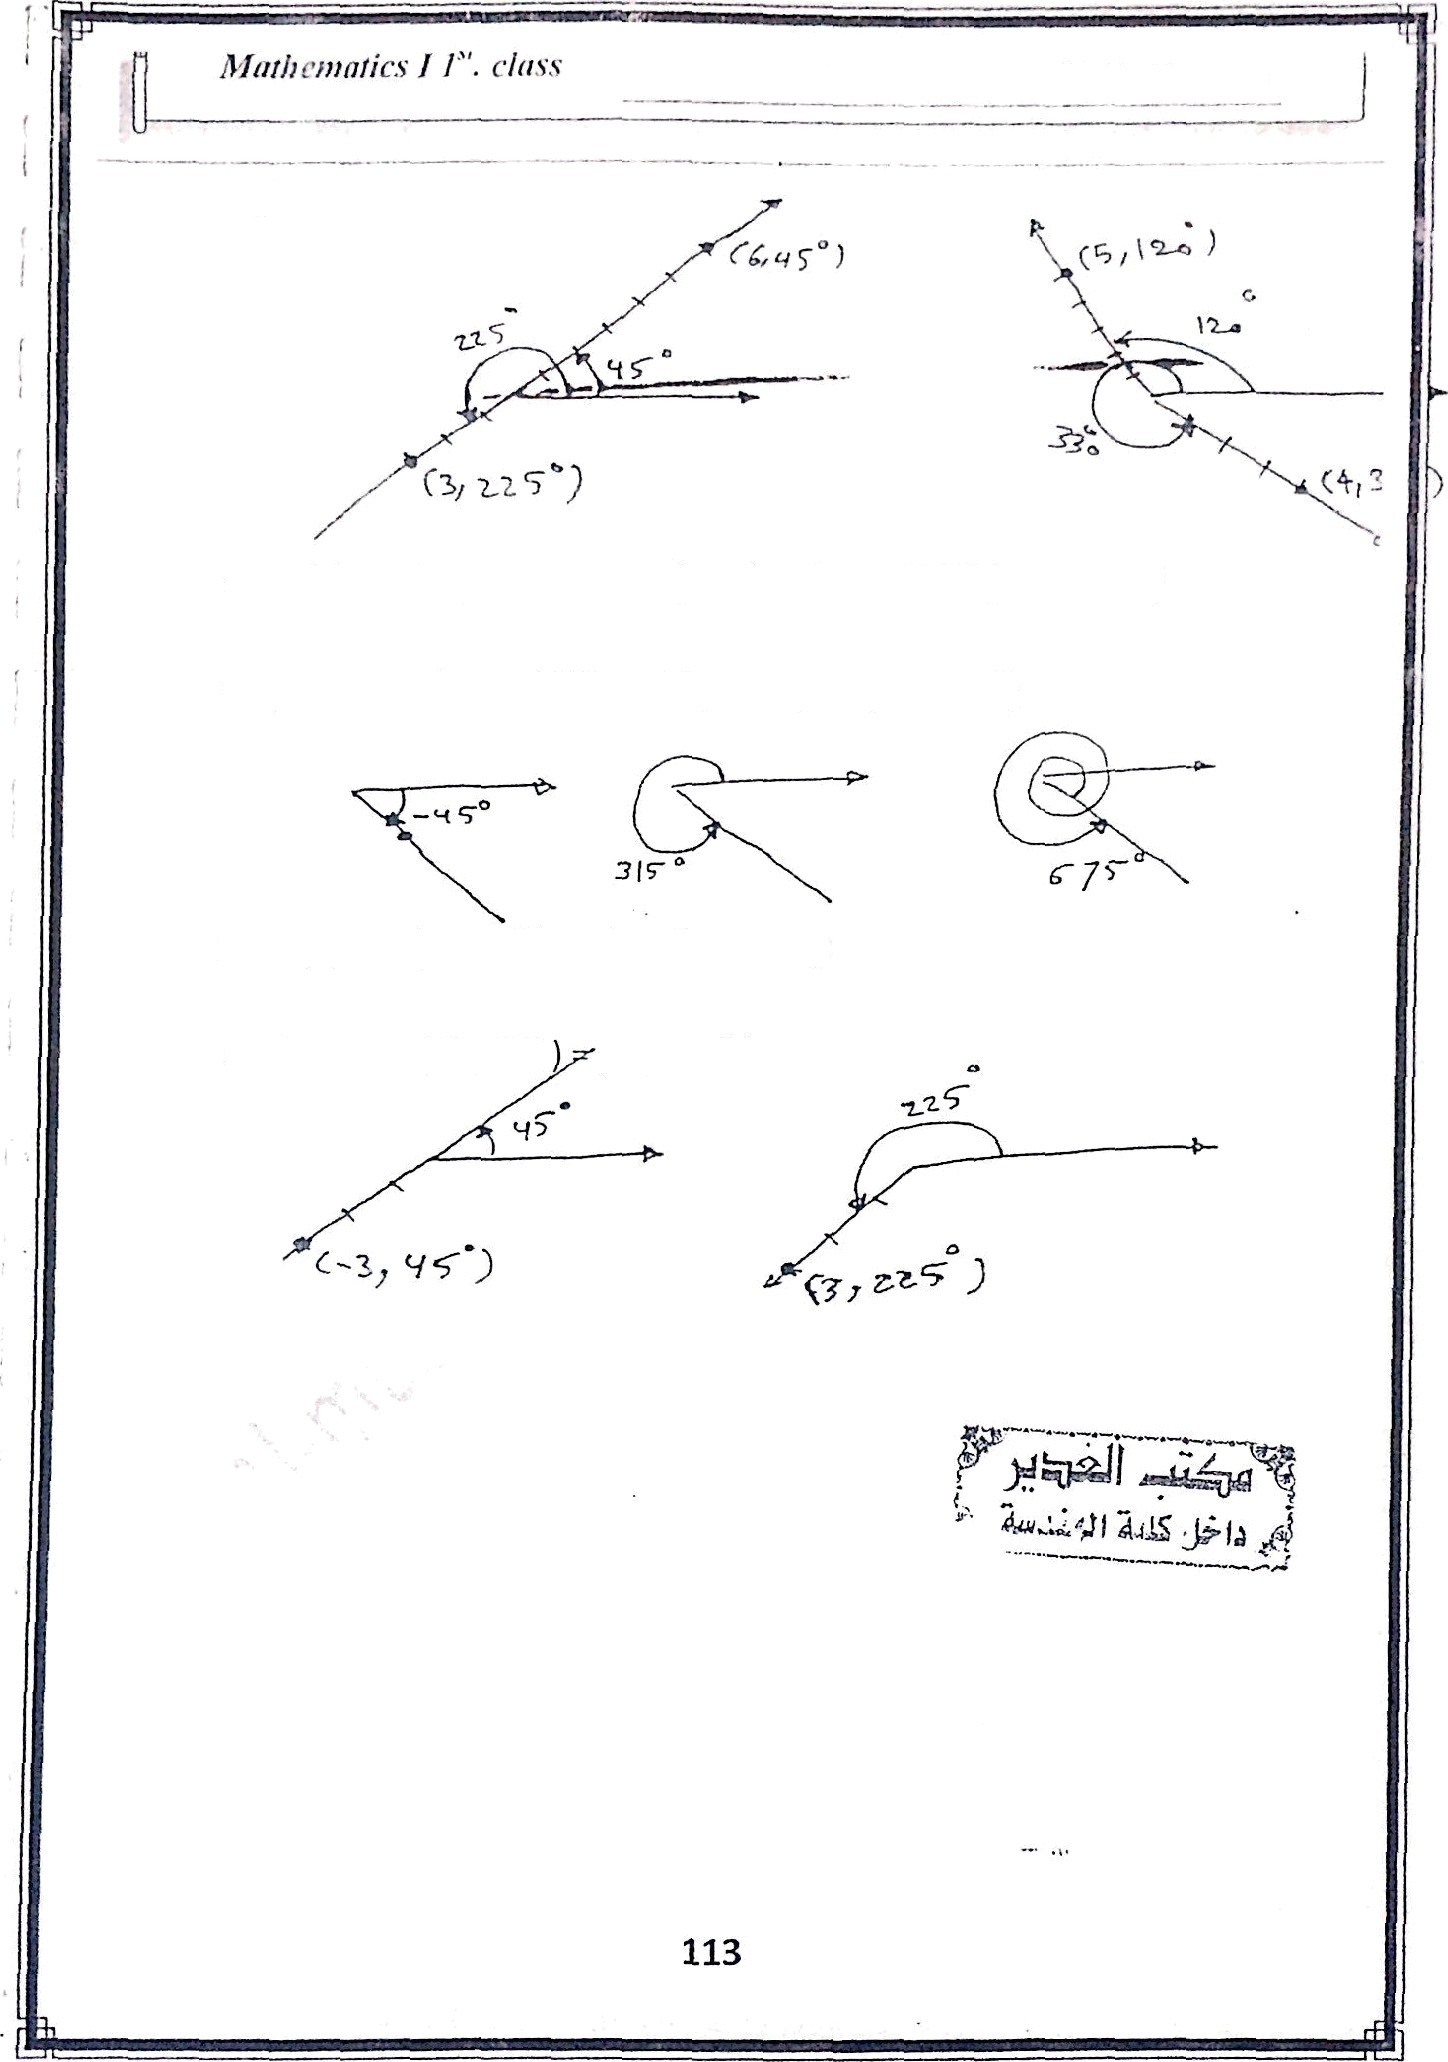 Mathematics I 1st. class
(6,45°)
(5,120°)
225°
45°
120°
330°
(3,225°)
(4,3 )
-45°
315°
675°
45°
225°
(-3,45°)
(3,225°)
مكتب الغدير
داخل كلية الهندسة
113